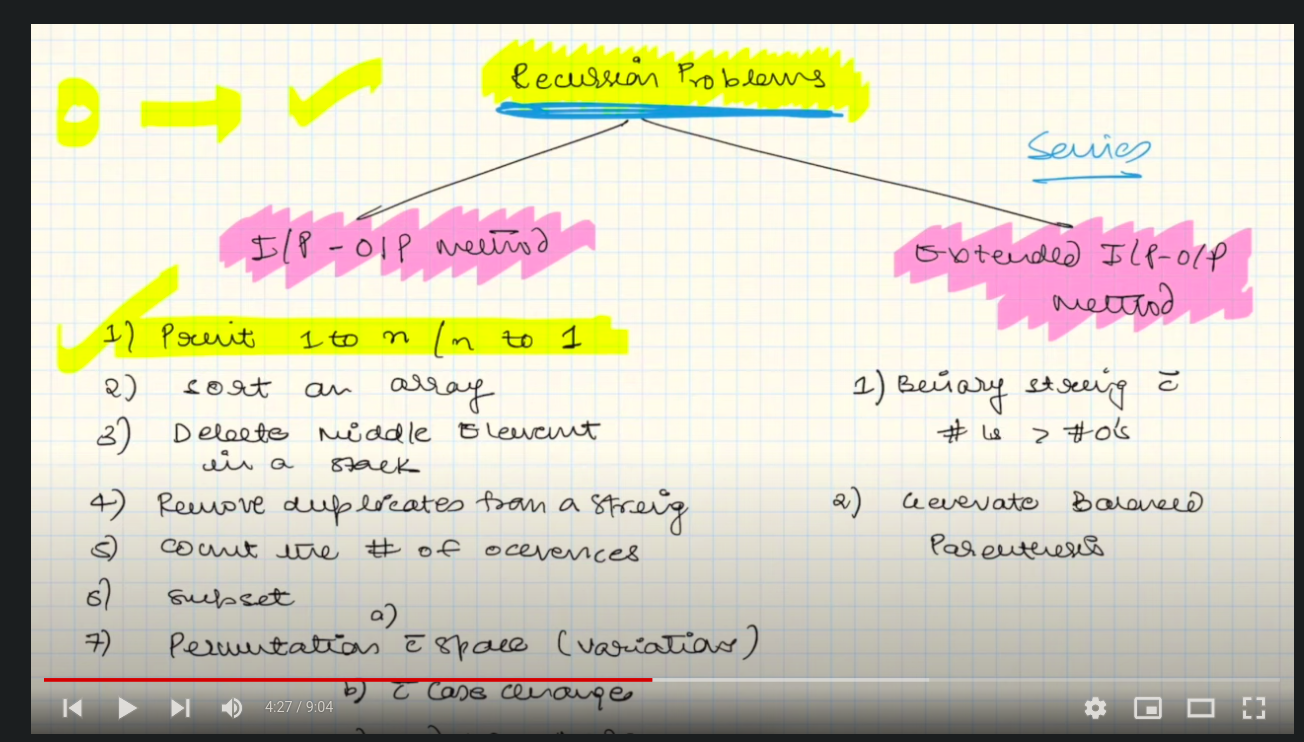 Recursion Problems
Series
I/P - O/P Method
Extended I/P-O/P
Method
1) Print 1 to n / n to 1
2) sort an array
3) Delete Middle Element
in a stack
4) Remove duplicates from a string
5) count the # of occurences
6) subset
a)
7) Permutation c̄ space (variation)
b) c̄ Case change
1) Binary string c̄
# 1s > # 0's
2) Generate Balanced
Parenthesis
4:27 / 9:04